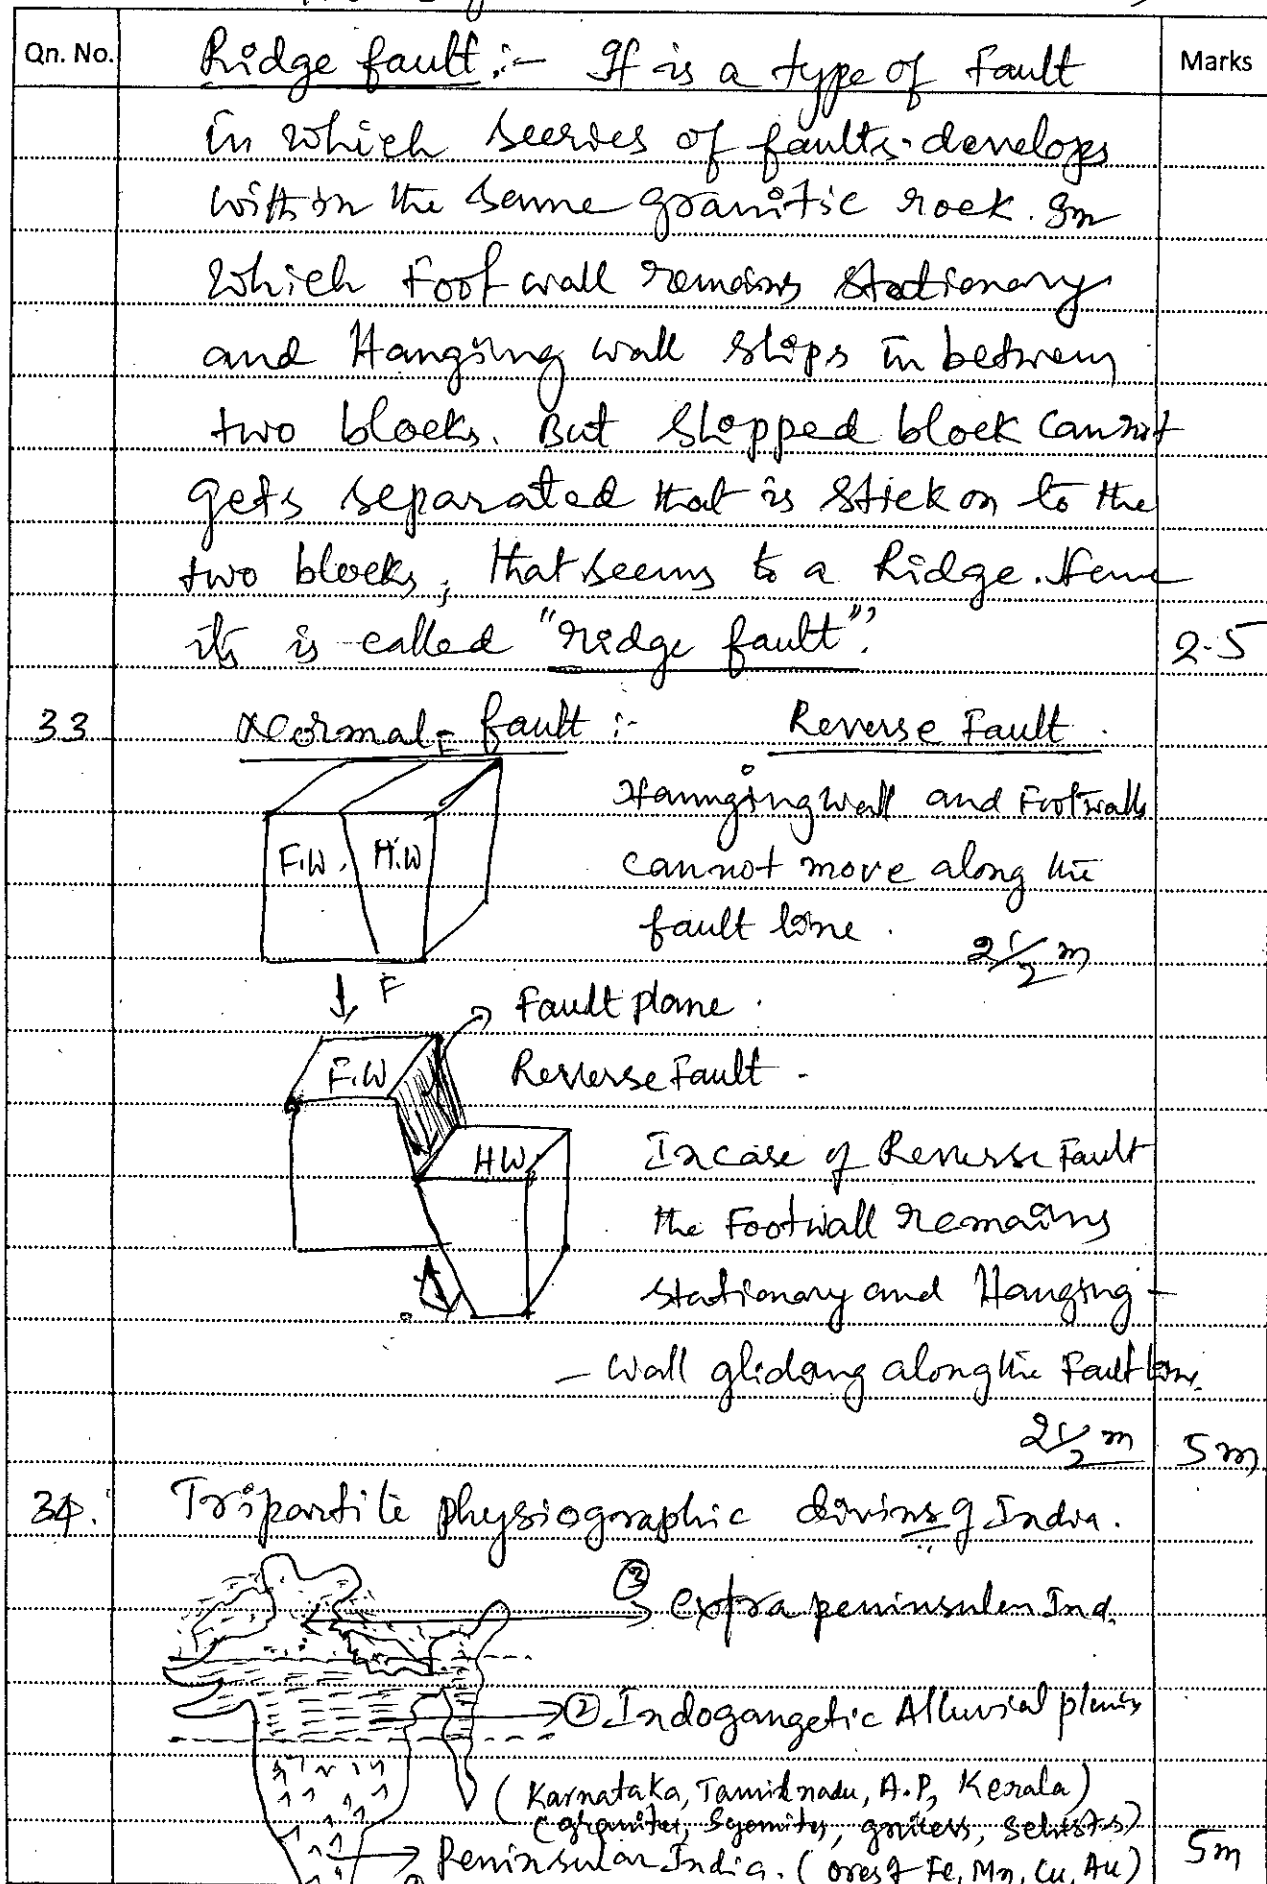 Qn. No.
Marks
Ridge fault :- It is a type of Fault
in which seeries of faults develops
within the same granitic rock. In
which Foot wall remains stationary
and Hanging wall slips in between
two blocks. But slopped block cannot
gets separated that is stick on to the
two blocks, that seems to a Ridge. Hence
its is called "ridge fault".
2.5
33
Normal fault :-
Reverse Fault.
F.W. H.W
Hannging wall and Footwalls
cannot move along the
fault line.
2 1/2 m
F
Fault plane.
F.W
Reverse Fault -
HW
Incase of Reverse Fault
the Footwall remains
stationary and Hanging -
- wall glidang along the Fault line.
2 1/2 m
5m
34.
Tripartite physiographic divins of India.
③ extra peninsular Ind.
② Indogangetic Alluvial plains
(Karnataka, Tamilnadu, A.P, Kerala)
(granites, Syenites, gneiss, schists)
Peninsular India. (ores of Fe, Mn, Cu, Au)
5m